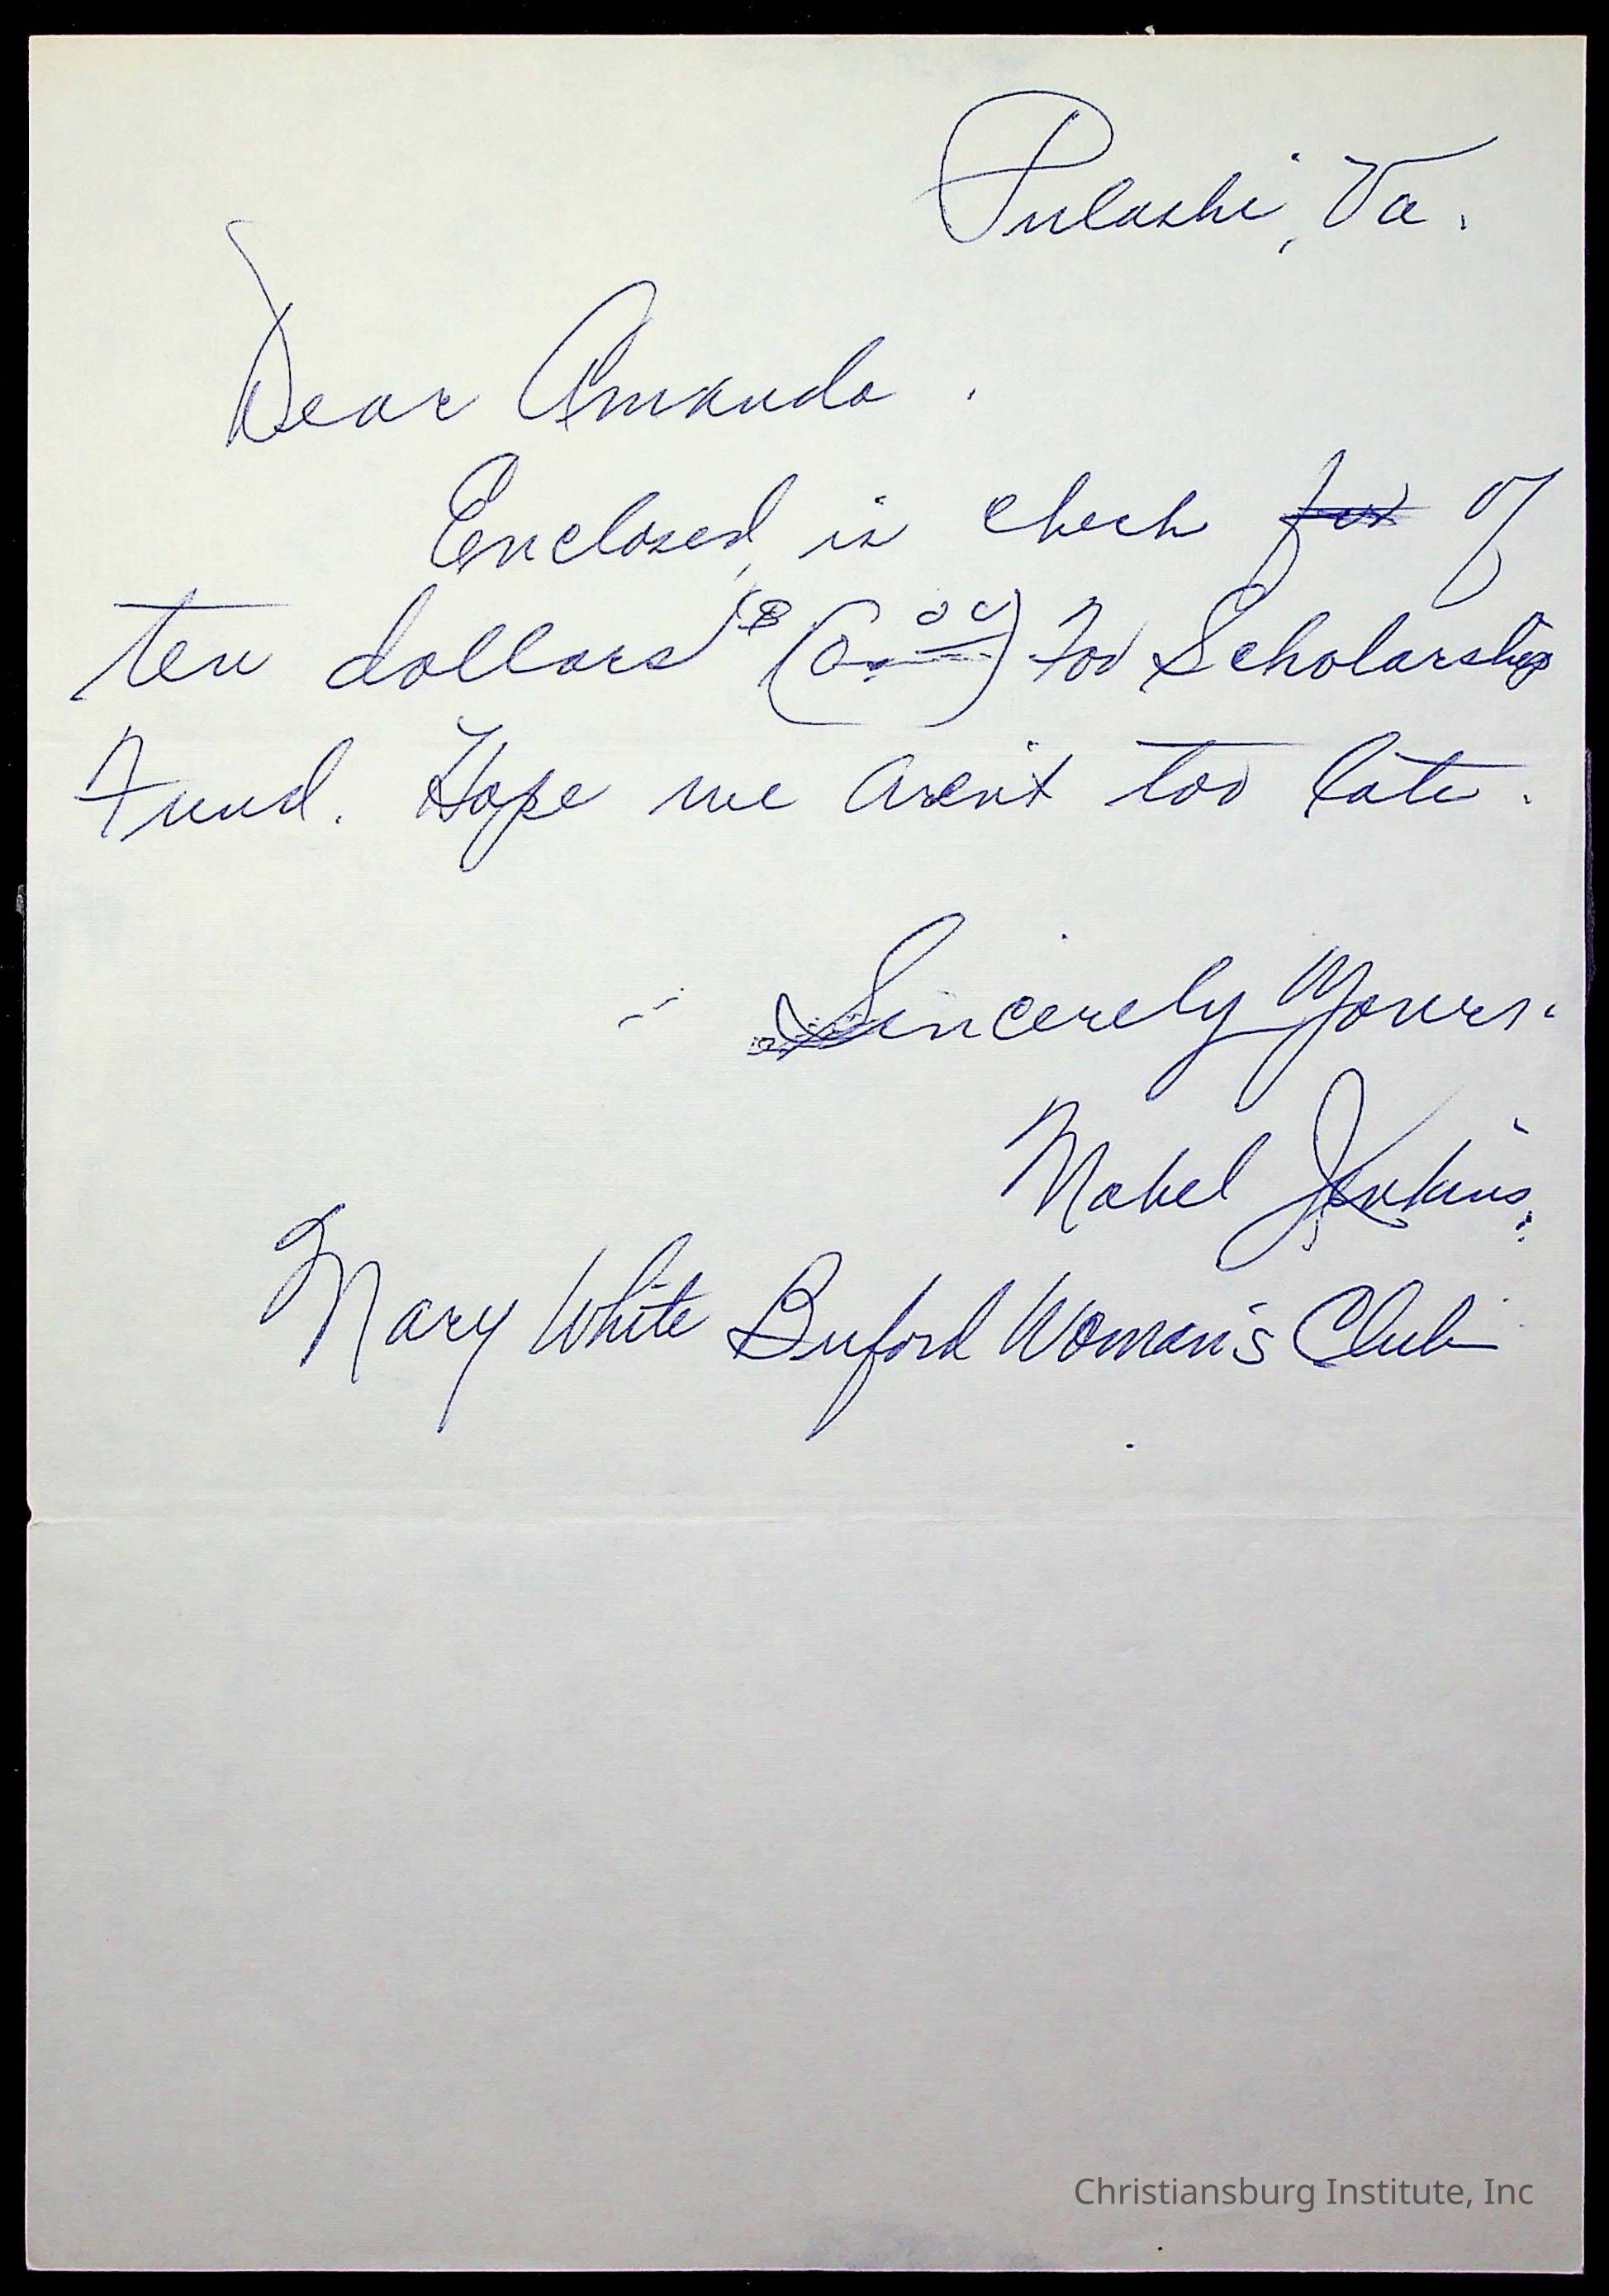 Pulaski, Va.
Dear Amanda.
Enclosed, is check for of
ten dollars for Scholarship
Fund. Hope we aren't too late.
Sincerely Yours.
Mabel Jenkins.
Mary White Buford Woman's Club
Christiansburg Institute, Inc